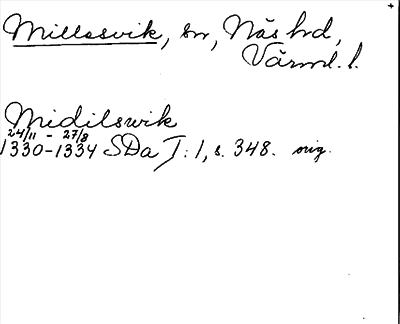 Millesvik, sn, Näs hd,
Värml. l.
Midilswik
24/11 - 27/8
1330-1334 SDa I:1, s. 348. orig.